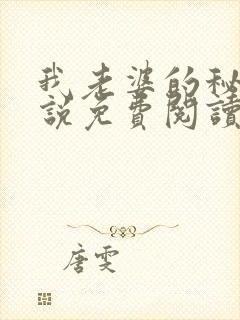 我老婆的秘
說免費閱讀
唐雯